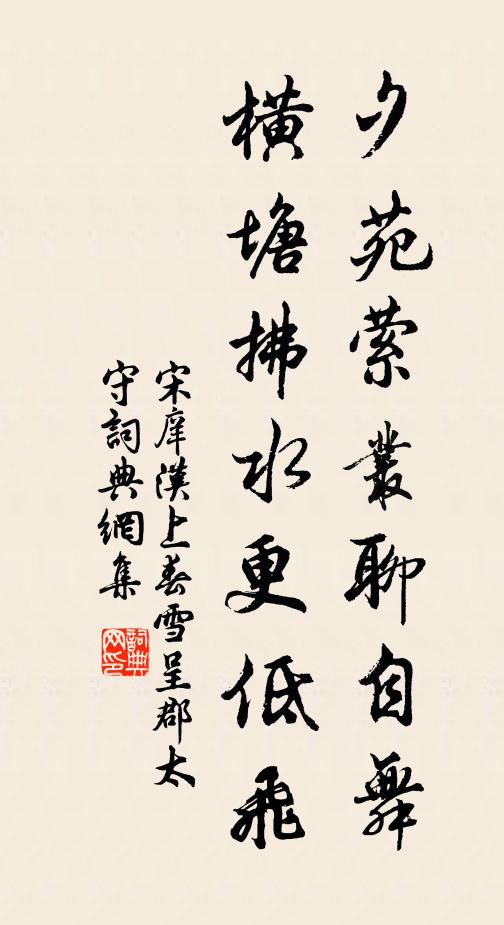 夕苑萦叢聊自舞
橫塘拂水更低飛
宋庠漢上春雪呈郡太
守詞典網集
詞典
网印